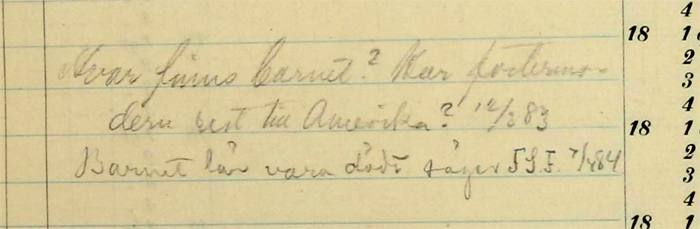 Hvar finns barnet? Har fostermo-
dern rest till Amerika? 12/3 83
Barnet lär vara dödt säger F.S.F. 7/4 84
4
18 1
2
3
4
18 1
2
3
4
18 1